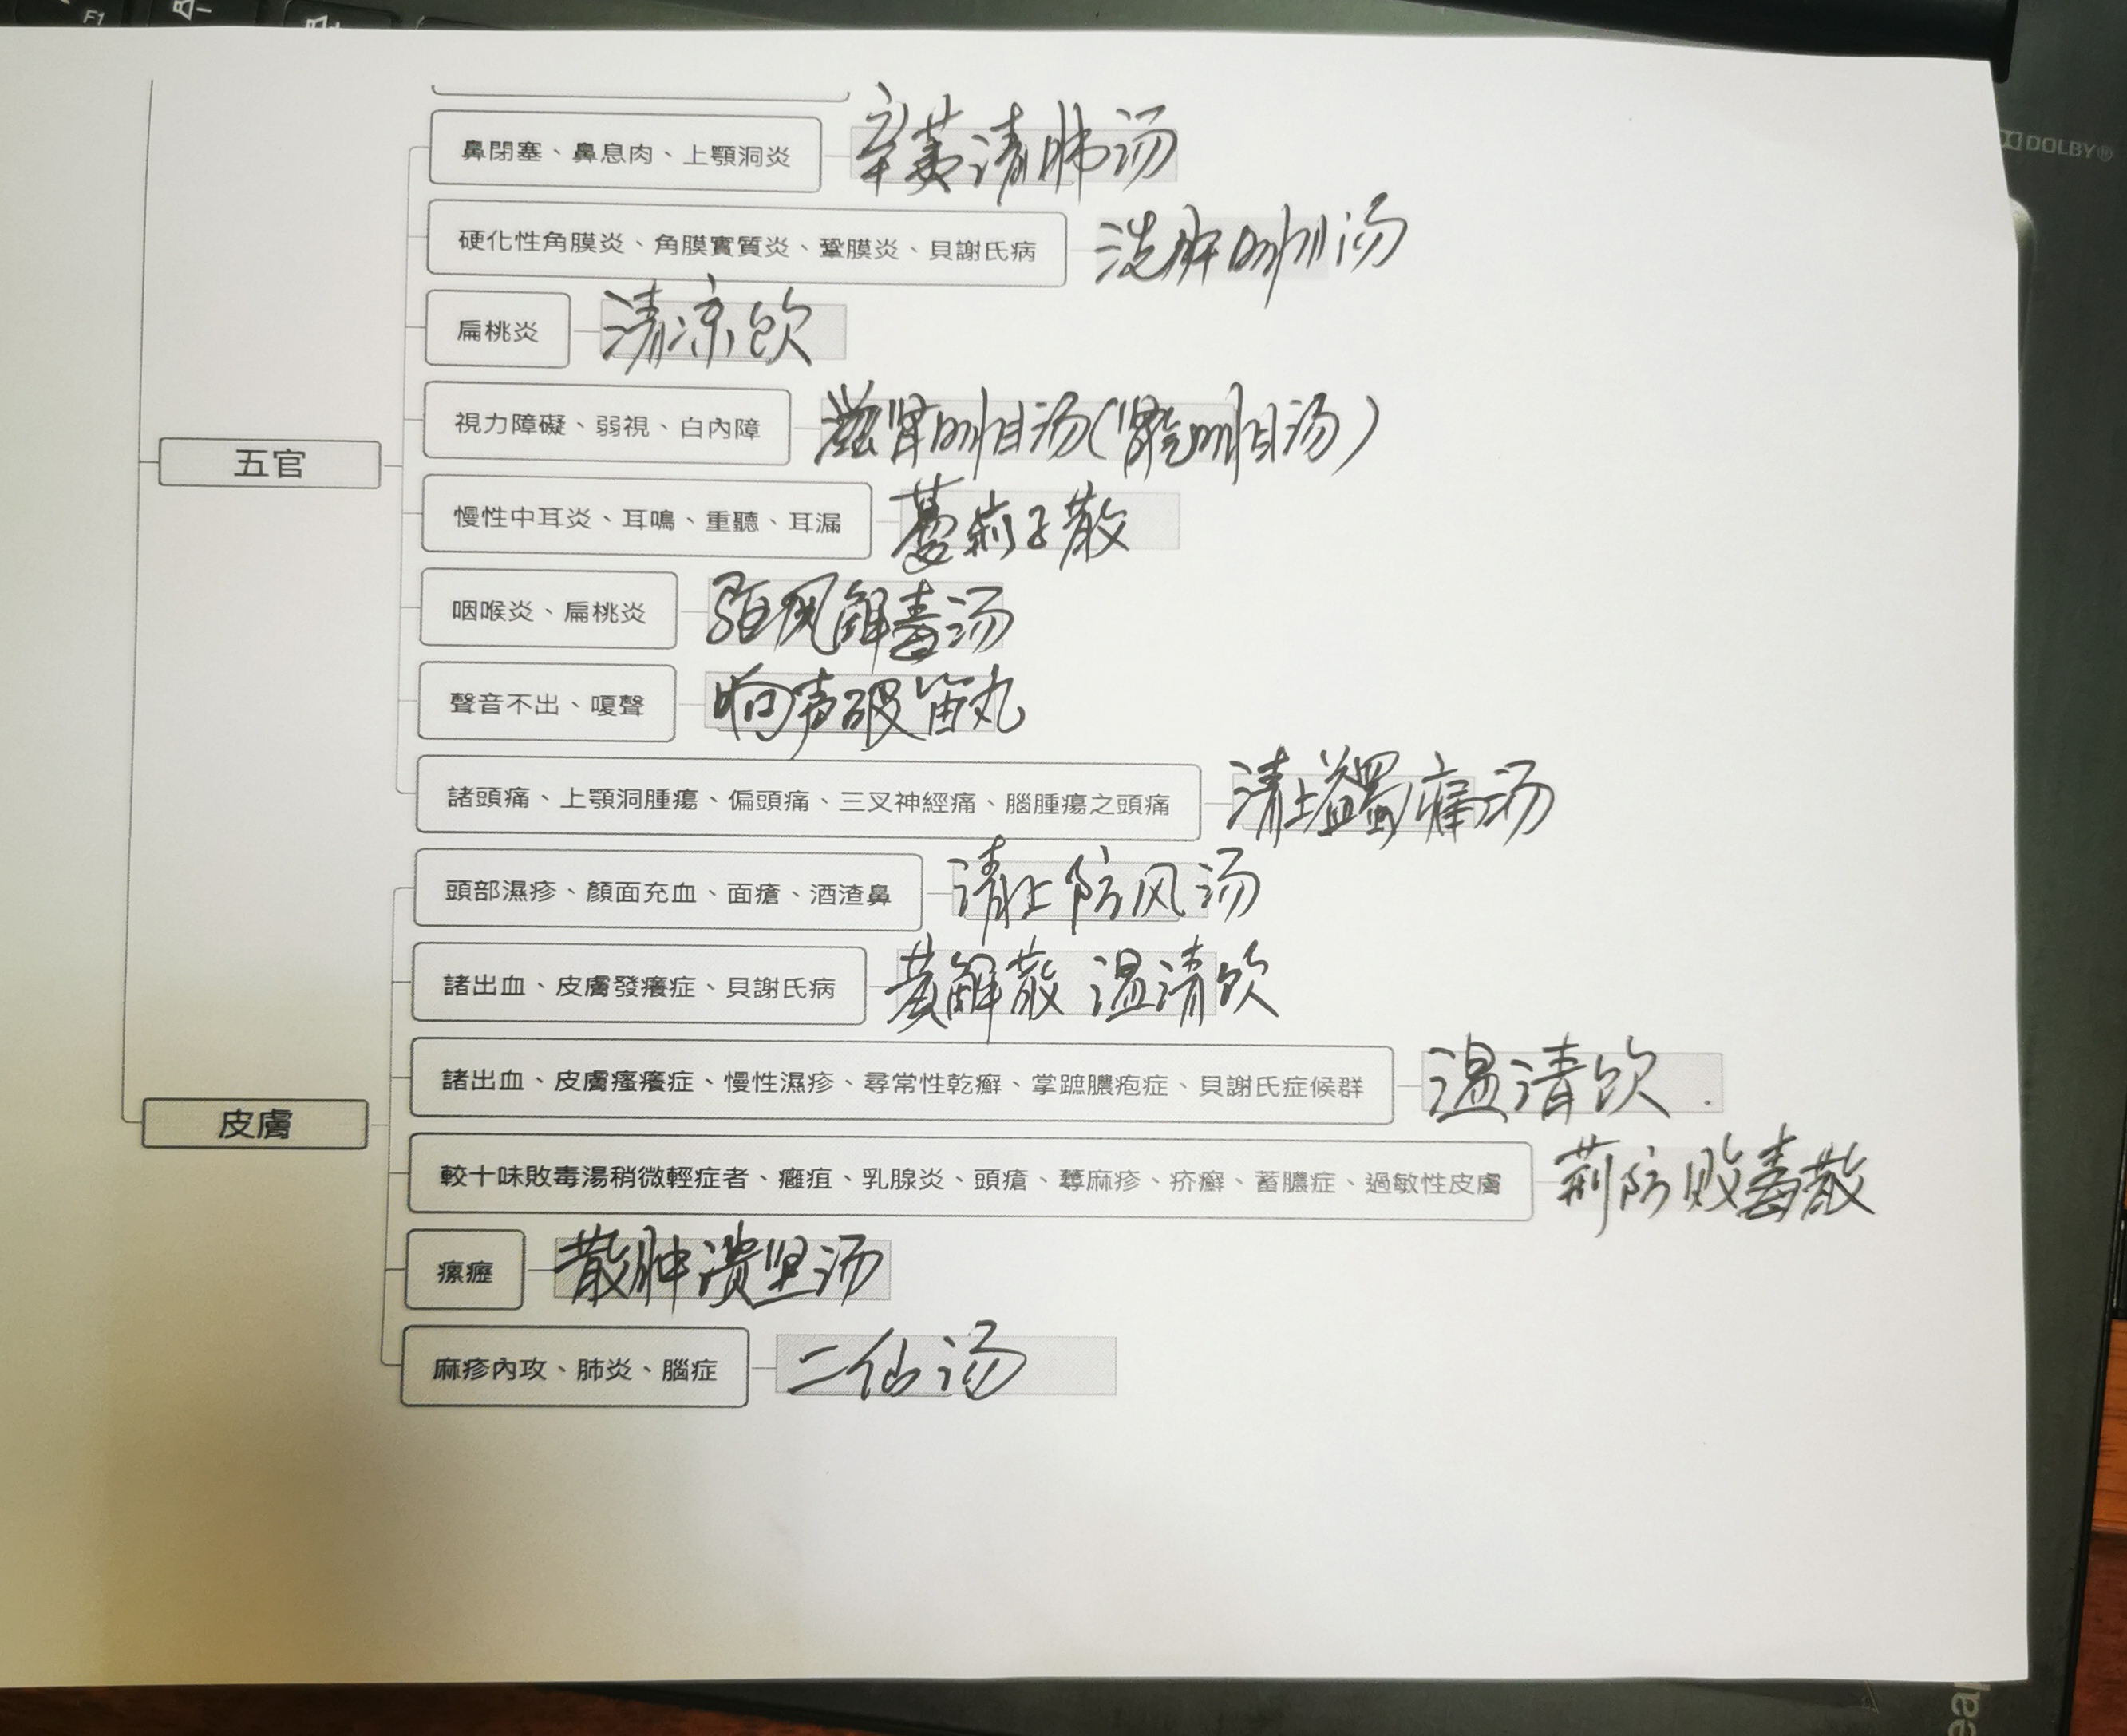 F1
DOLBY®
鼻閉塞、鼻息肉、上顎洞炎 辛荑清肺汤
硬化性角膜炎、角膜實質炎、鞏膜炎、貝謝氏病 洗肝明目汤
扁桃炎 清凉饮
五官
視力障礙、弱視、白內障 滋肾明目汤(肾气明目汤)
慢性中耳炎、耳鳴、重聽、耳漏 蔓荊子散
咽喉炎、扁桃炎 驱风解毒汤
聲音不出、嗄聲 响声破笛丸
諸頭痛、上顎洞腫瘍、偏頭痛、三叉神經痛、腦腫瘍之頭痛 清上蠲痛汤
頭部濕疹、顏面充血、面瘡、酒渣鼻 清上防风汤
諸出血、皮膚發癢症、貝謝氏病 黄解散 温清饮
諸出血、皮膚瘙癢症、慢性濕疹、尋常性乾癬、掌蹠膿疱症、貝謝氏症候群 温清饮.
皮膚
較十味敗毒湯稍微輕症者、癰疽、乳腺炎、頭瘡、蕁麻疹、疥癬、蓄膿症、過敏性皮膚 荊防败毒散
瘰癧 散肿溃坚汤
麻疹內攻、肺炎、腦症 二仙汤